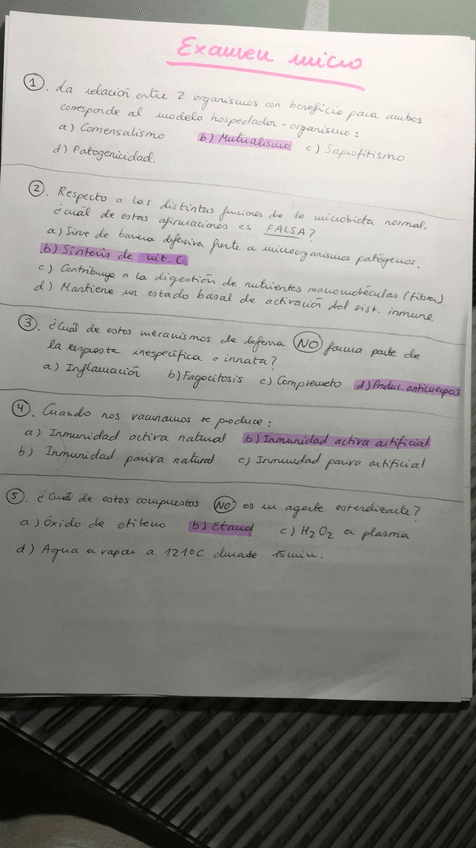 Examen micro
1. La relación entre 2 organismos con beneficio para ambos
corresponde al modelo hospedador-organismo:
a) Comensalismo b) Mutualismo c) Saprofitismo
d) Patogenicidad.
2. Respecto a las distintas funciones de la microbiota normal,
¿cuál de estas afirmaciones es FALSA?
a) Sirve de barrera defensiva frente a microorganismos patógenos.
b) Síntesis de vit. C
c) Contribuye a la digestión de nutrientes macromoléculas (fibra)
d) Mantiene un estado basal de activación del sist. inmune
3. ¿Cuál de estos mecanismos de defensa NO forma parte de
la respuesta inespecífica o innata?
a) Inflamación b) Fagocitosis c) Complemento d) Produc. anticuerpos
4. Cuando nos vacunamos se produce:
a) Inmunidad activa natural b) Inmunidad activa artificial
b) Inmunidad pasiva natural c) Inmunidad pasiva artificial
5. ¿Cuál de estos compuestos NO es un agente esterilizante?
a) Óxido de etileno b) Etanol c) H2O2 en plasma
d) Agua en vapor a 121ºC durante 15 min.